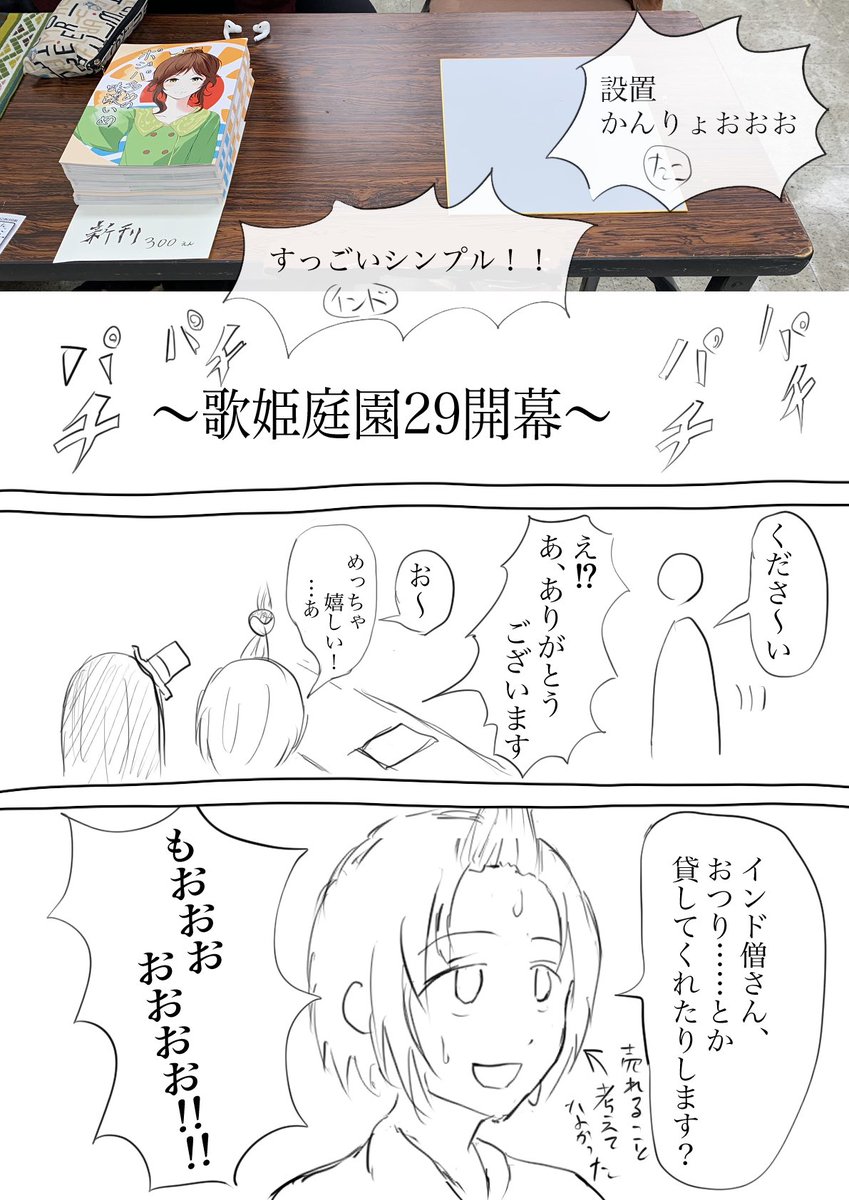 設置
かんりょおおお
たこ
すっごいシンプル！！
インド
新刊 300えん
パチ
パチ
パチ
パチ
～歌姫庭園29開幕～
くださ～い
え⁉
あ、ありがとう
ございます
お～
めっちゃ
嬉しい！
…あ
インド僧さん、
おつり……とか
貸してくれたりします？
売れること
考えて
なかった
もおおお
おおおお‼‼